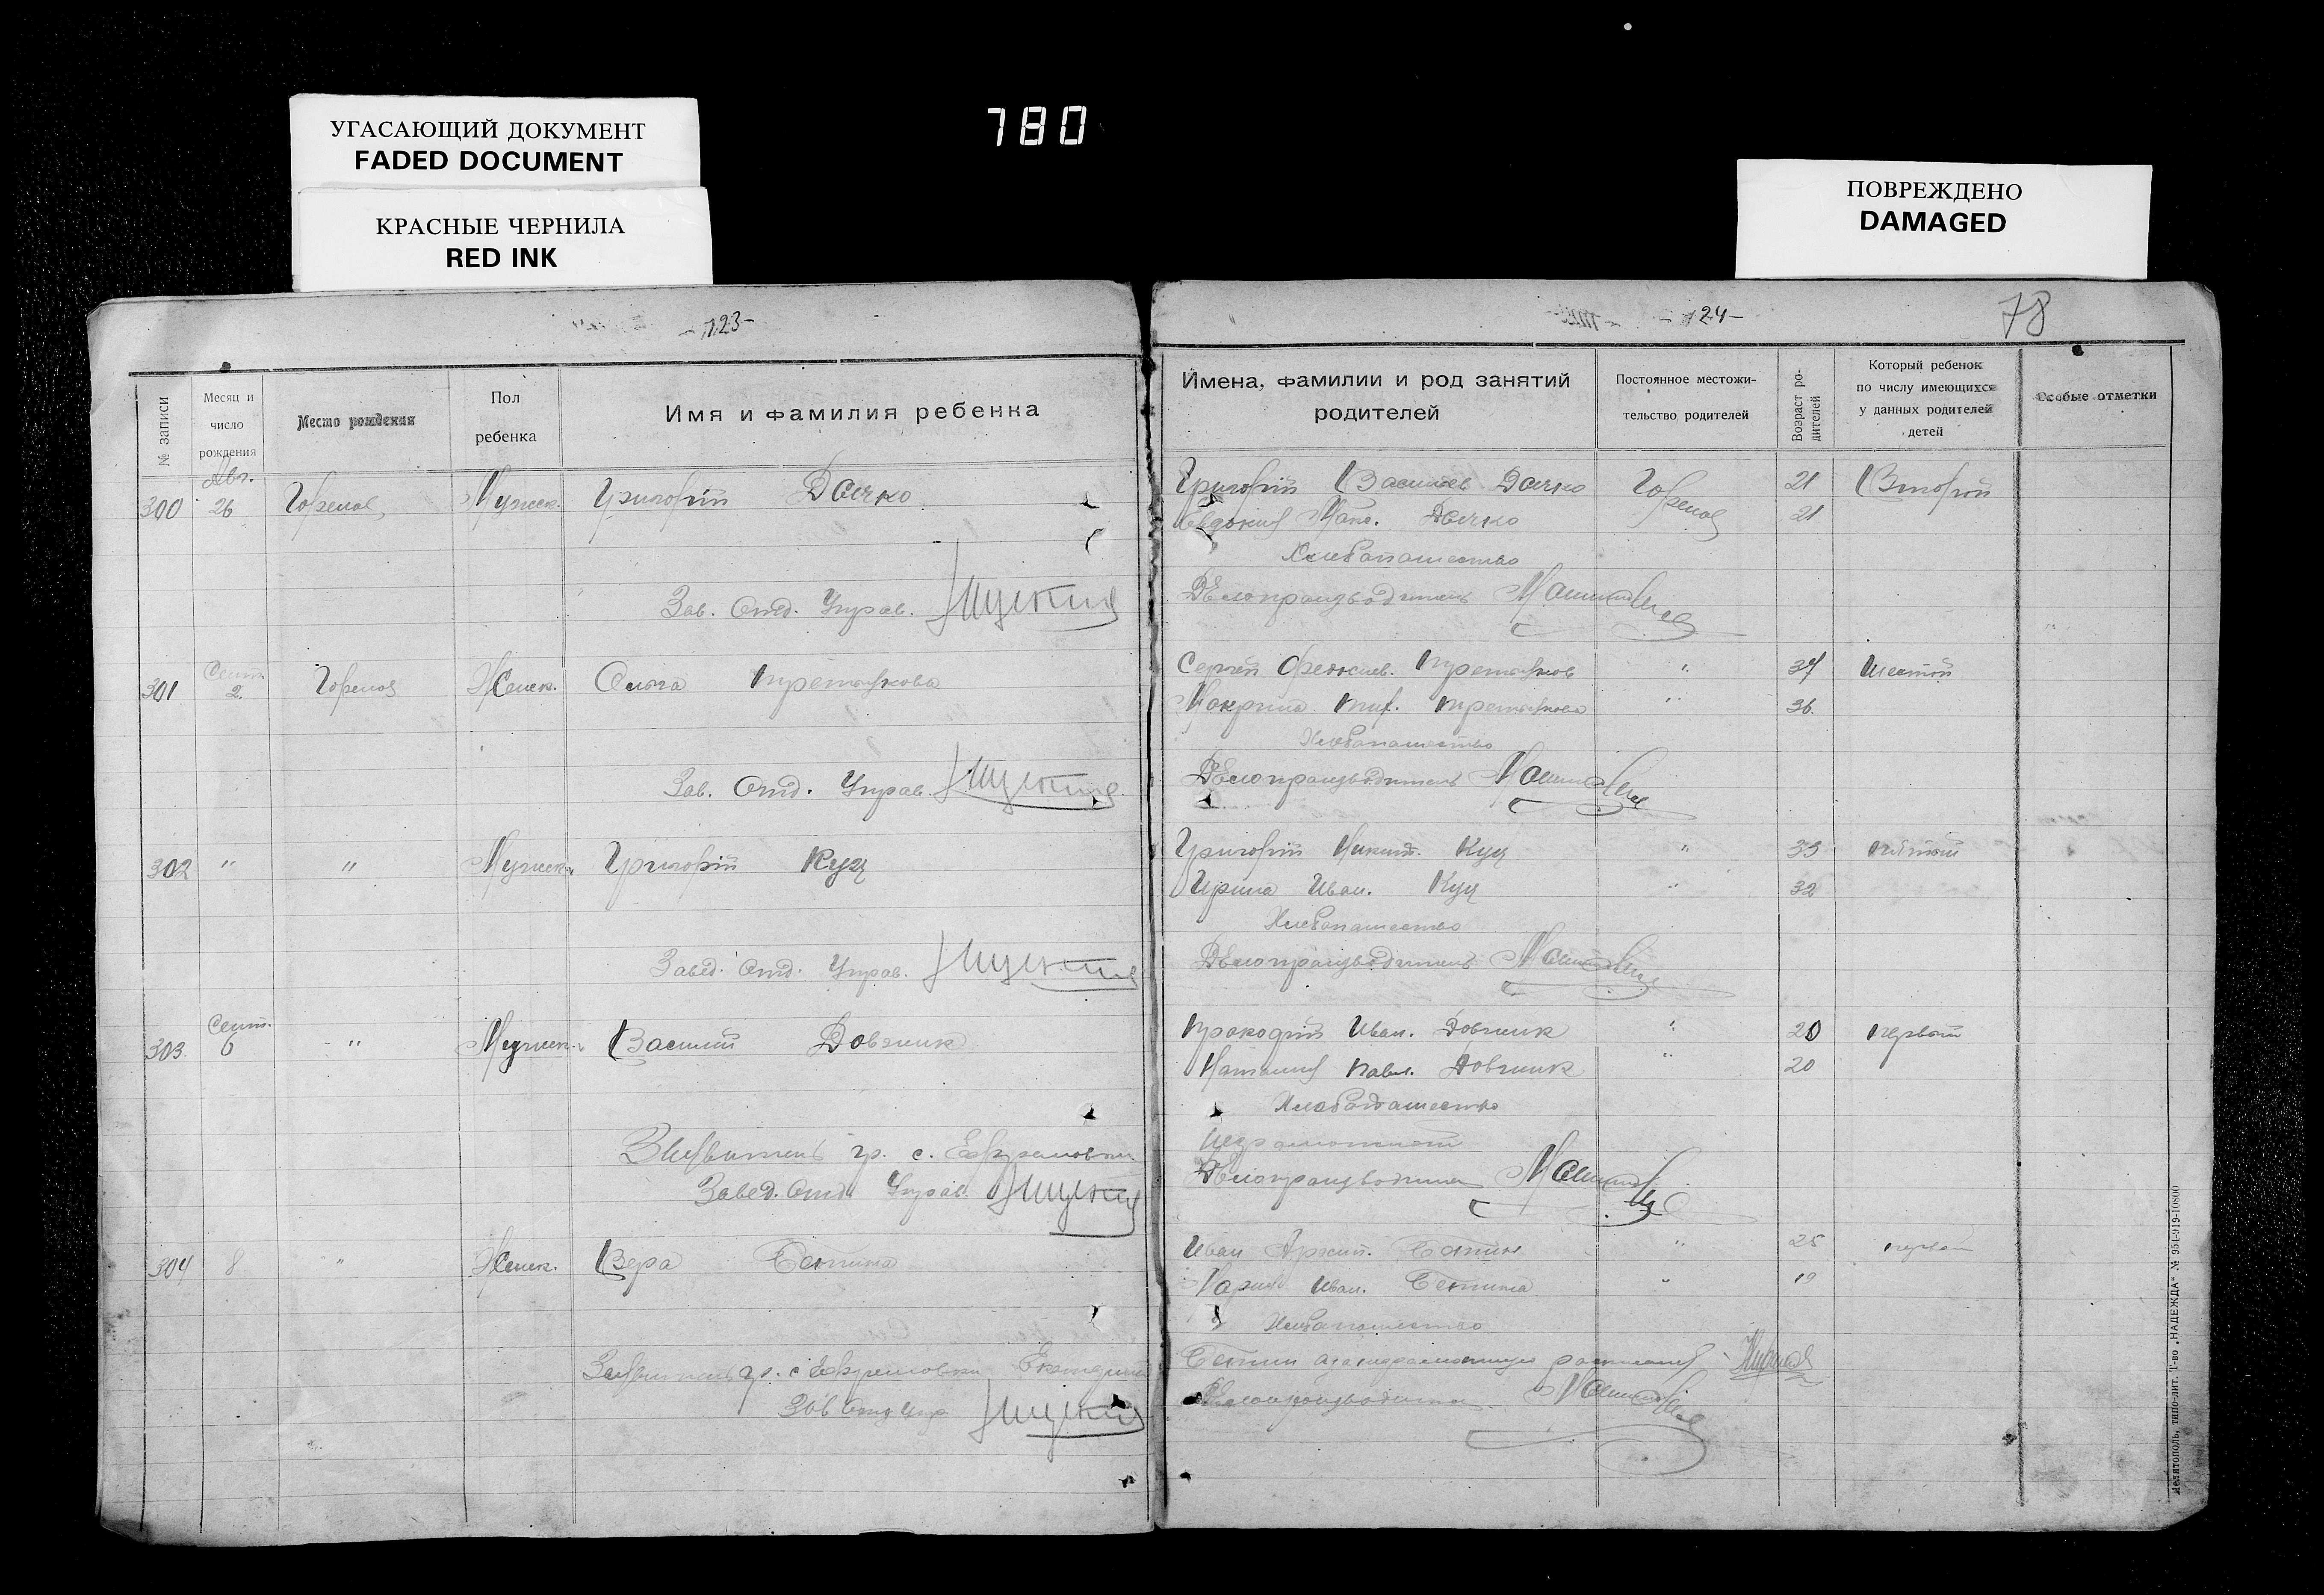 780
УГАСАЮЩИЙ ДОКУМЕНТ
FADED DOCUMENT
КРАСНЫЕ ЧЕРНИЛА
RED INK
ПОВРЕЖДЕНО
DAMAGED
-123-
№ записи
Месяц и число рождения
Место рождения
Пол ребенка
Имя и фамилия ребенка
Авг.
300 26 Горелое Мужск. Григорій Дячко
Зав. Отд. Управ.
Сент.
301 2. Горелое Женск. Ольга Третьякова
Зав. Отд. Управ.
302 " " Мужск. Григорій Куц
Завед. Отд. Управ.
Сент.
303 6 " Мужск. Василий Довжик
Заявитель гр. с. Ефремовки
Завед. Отд. Управ.
304 8 " Женск. Вера
Заявитель гр. с Ефремовки
Зав Отд Упр
-124-
78
Имена, фамилии и род занятий родителей
Постоянное местожительство родителей
Возраст родителей
Который ребенок по числу имеющихся у данных родителей детей
Особые отметки
Григорій Васильев Дячко Горелое 21 Второй
Евдокия Дячко 21
Хлебопашество
Делопроизводитель
Сергей Третьяков " 37 шестой
Макрина Третьякова " 36.
Хлебопашество
Делопроизводитель
Григорій Никит. Куц " 33 пятый
Ирина Иван. Куц " 32
Хлебопашество
Делопроизводитель
Иван. Довжик " 20 первый
Наталия Павл. Довжик " 20
Хлебопашество
Неграмотный
Делопроизводитель
Иван Архип. " 25 первый
Мария Иван. " 19
Хлебопашество
Делопроизводитель
Мелитополь, типо-лит. Т-во „НАДЕЖДА“ № 954-919-10800